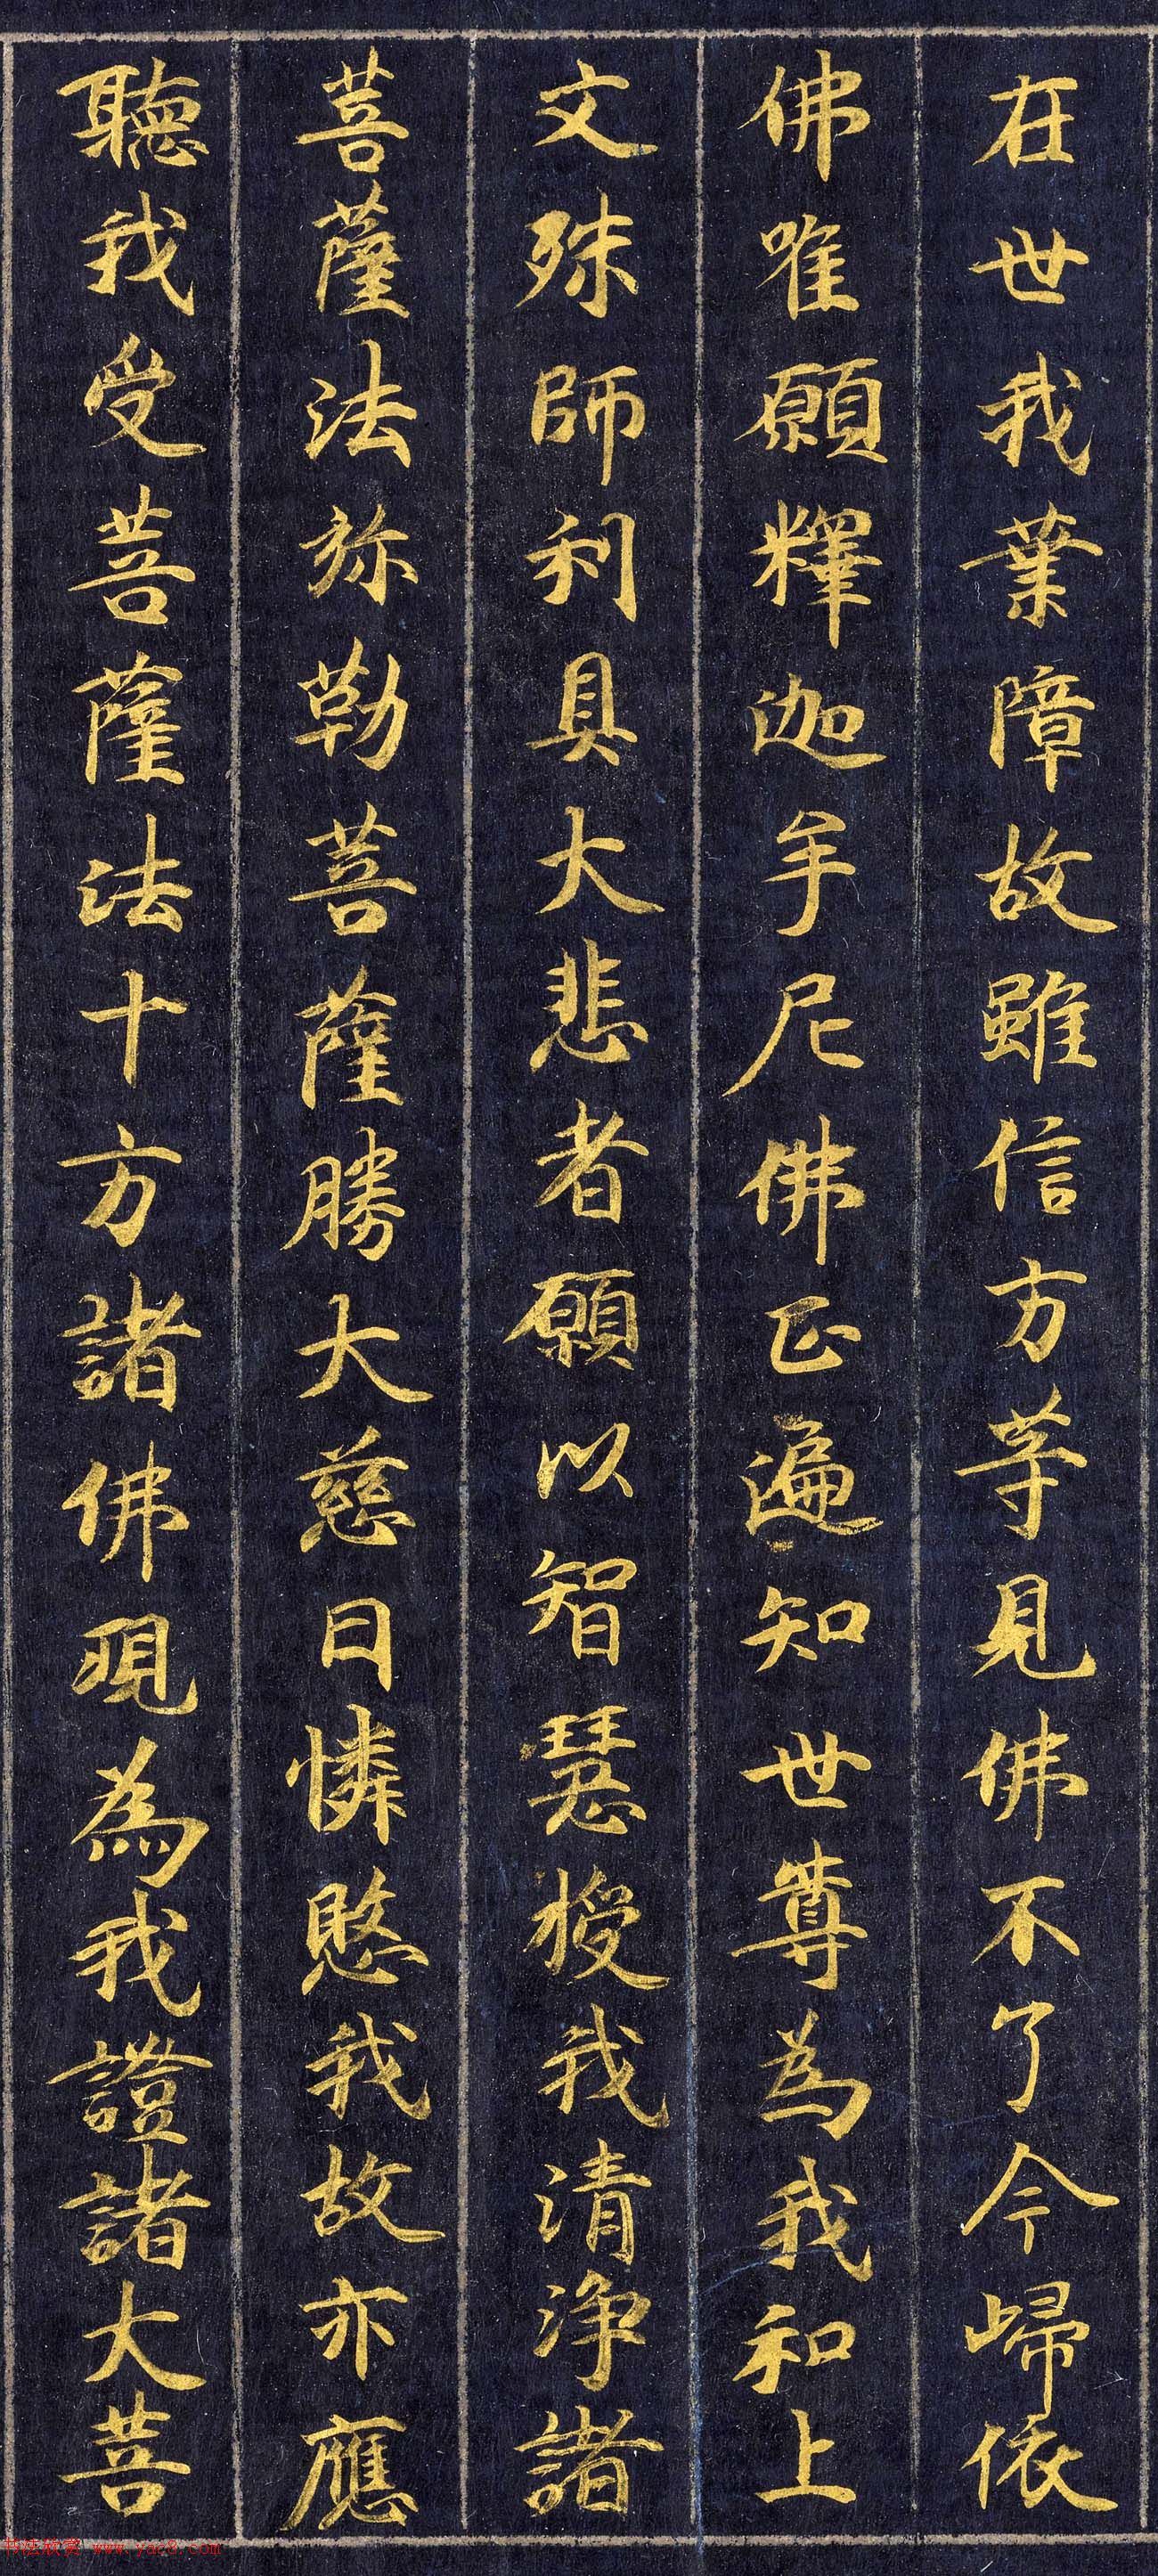 在世我業障故雖信方等見佛不了今歸依
佛唯願釋迦牟尼佛正遍知世尊為我和上
文殊師利具大悲者願以智慧授我清淨諸
菩薩法弥勒菩薩勝大慈日憐愍我故亦應
聽我受菩薩法十方諸佛現為我證諸大菩
书法欣赏 www.yac8.com